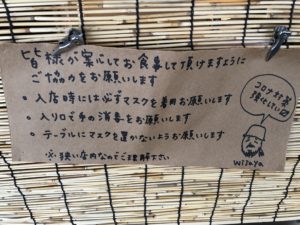 皆様が安心してお食事して頂けますように
ご協力をお願いします
• 入店時には必ずマスクを着用お願いします
• 入り口で手の消毒をお願いします
• テーブルにマスクを置かないようお願いします
※狭い店内なのでご理解下さい
コロナ対策
wisaya